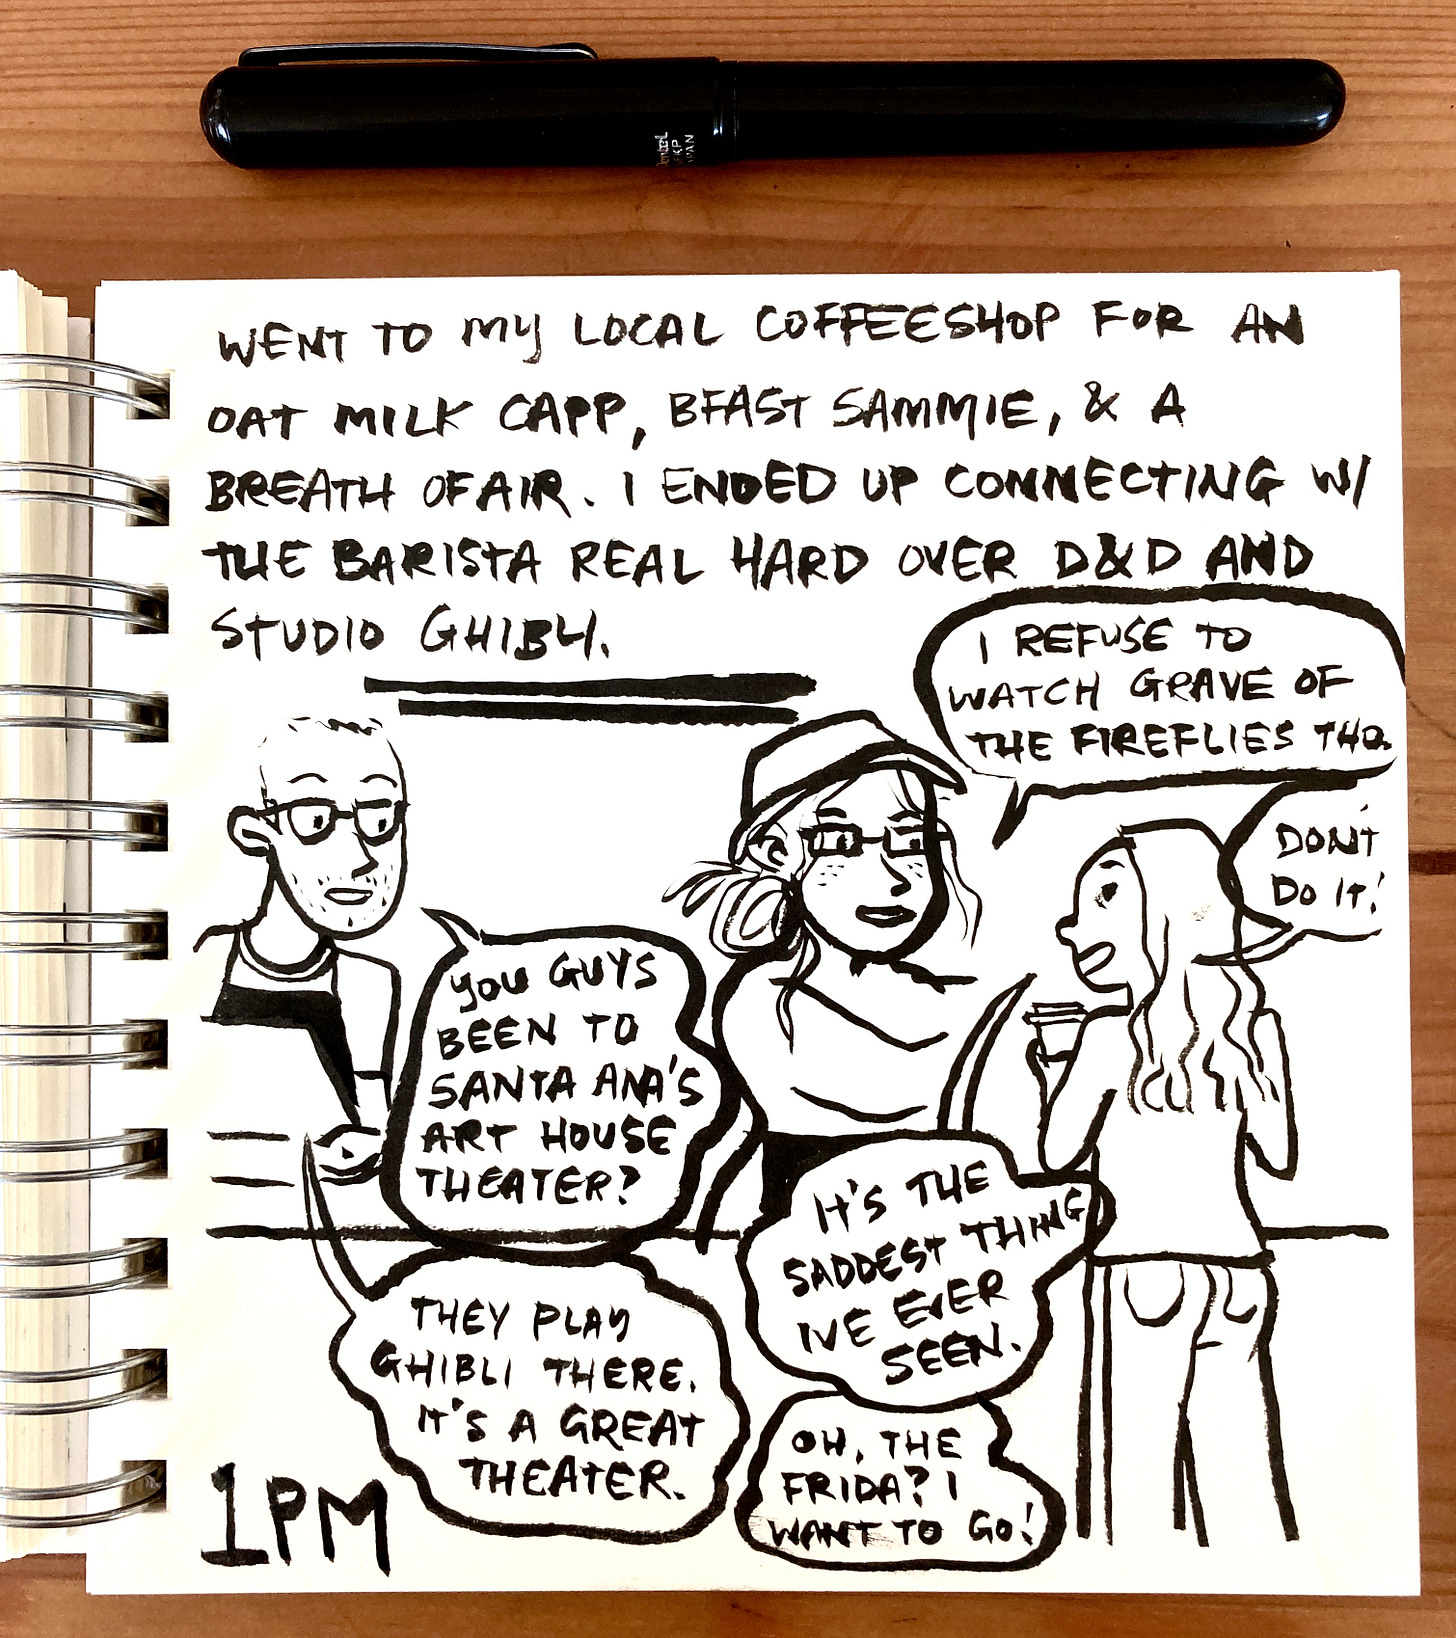 Pentel
GFKP
JAPAN
WENT TO MY LOCAL COFFEESHOP FOR AN
OAT MILK CAPP, BFAST SAMMIE, & A
BREATH OF AIR. I ENDED UP CONNECTING W/
THE BARISTA REAL HARD OVER D&D AND
STUDIO GHIBLI.
I REFUSE TO
WATCH GRAVE OF
THE FIREFLIES THO.
DON'T
DO IT!
YOU GUYS
BEEN TO
SANTA ANA'S
ART HOUSE
THEATER?
IT'S THE
SADDEST THING
IVE EVER
SEEN.
THEY PLAY
GHIBLI THERE.
IT'S A GREAT
THEATER.
OH, THE
FRIDA? I
WANT TO GO!
1PM